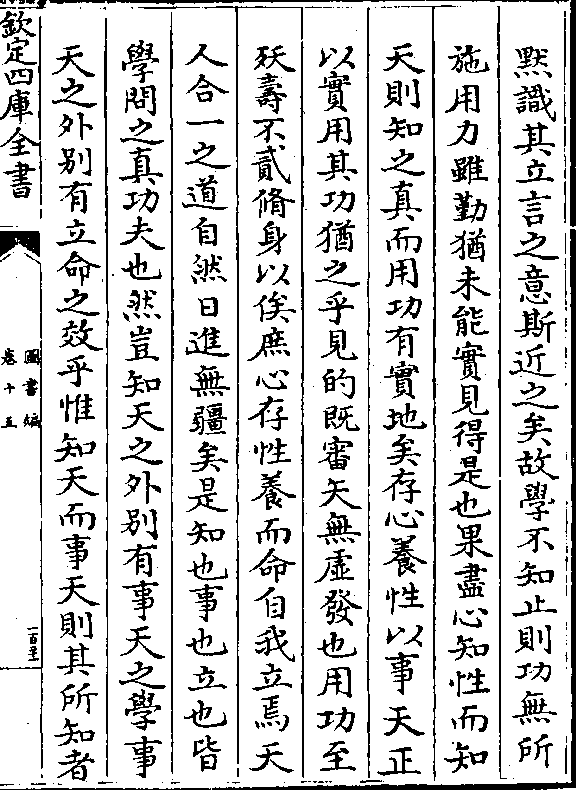 默識其立言之意斯近之矣故學不知止則功無所
施用力雖勤猶未能實見得是也果盡心知性而知
天則知之真而用功有實地矣存心養性以事天正
以實用其功猶之乎見的既審矢無虛發也用功至
殀壽不貳脩身以俟庶心存性養而命自我立焉天
人合一之道自然日進無疆矣是知也事也立也皆
學問之真功夫也然豈知天之外別有事天之學事
天之外別有立命之效乎惟知天而事天則其所知者
欽定四庫全書
圖書編
卷十五